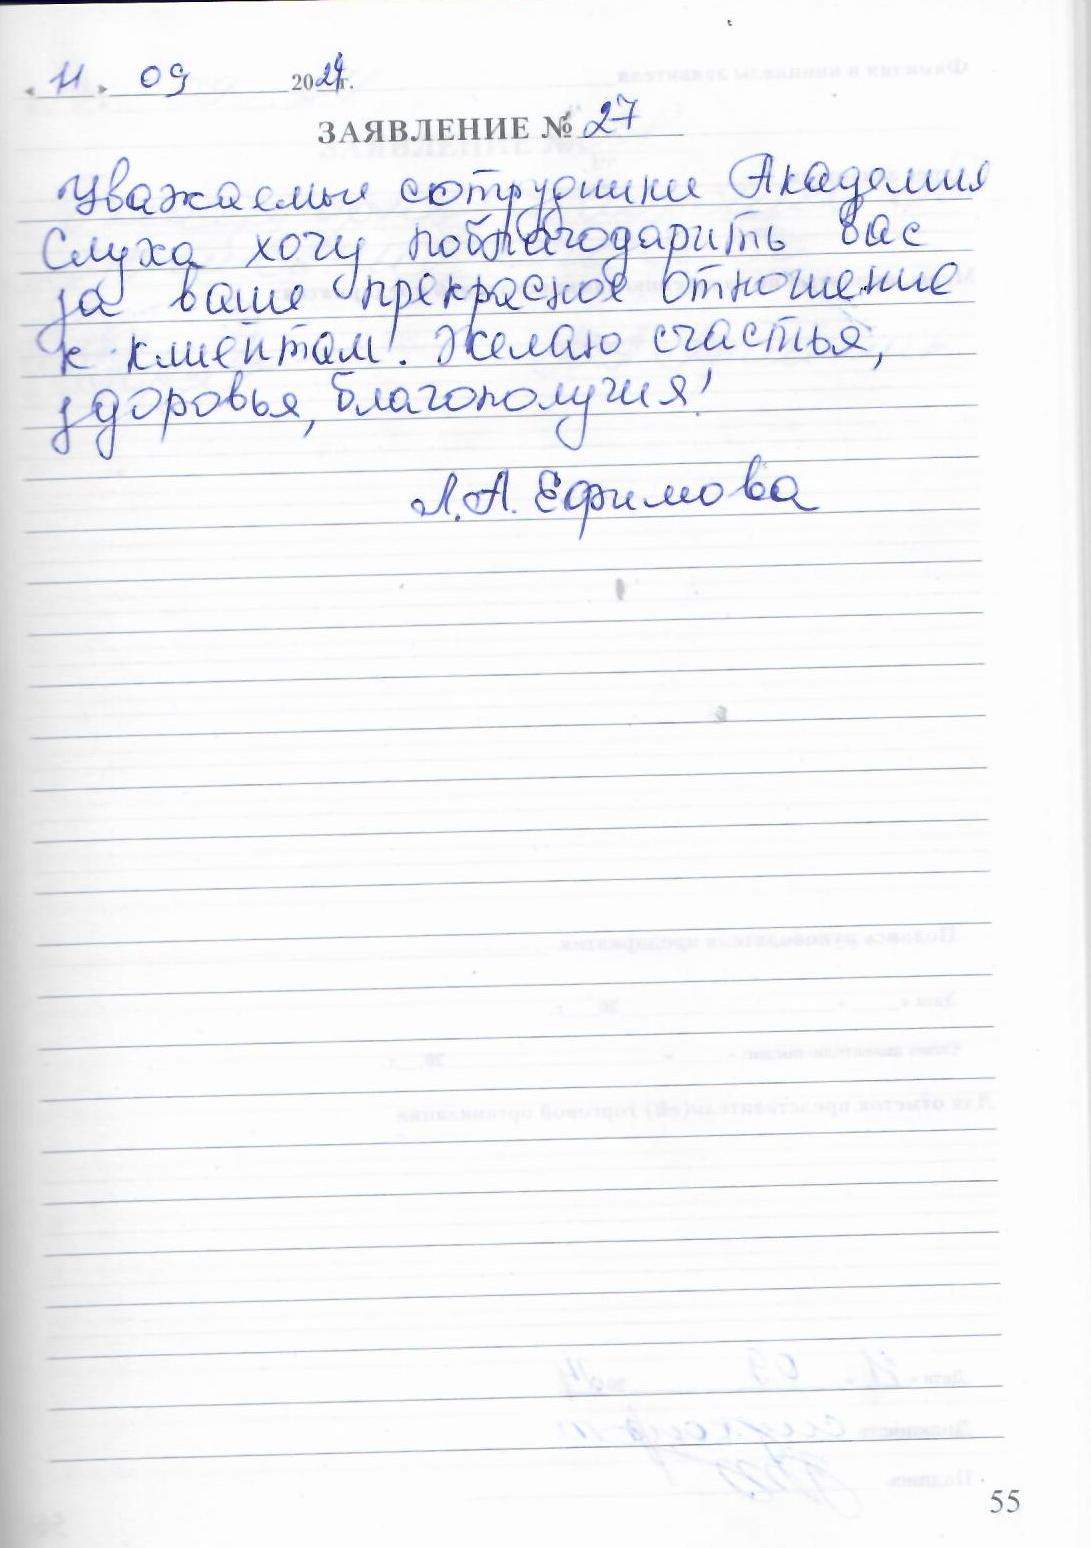 « 11 » 09 2024г.
ЗАЯВЛЕНИЕ № 27
Уважаемые сотрудники Академия
Слуха хочу поблагодарить вас
за ваше прекрасное отношение
к клиентам. Желаю счастья,
здоровья, благополучия!
Л.А. Ефимова
55